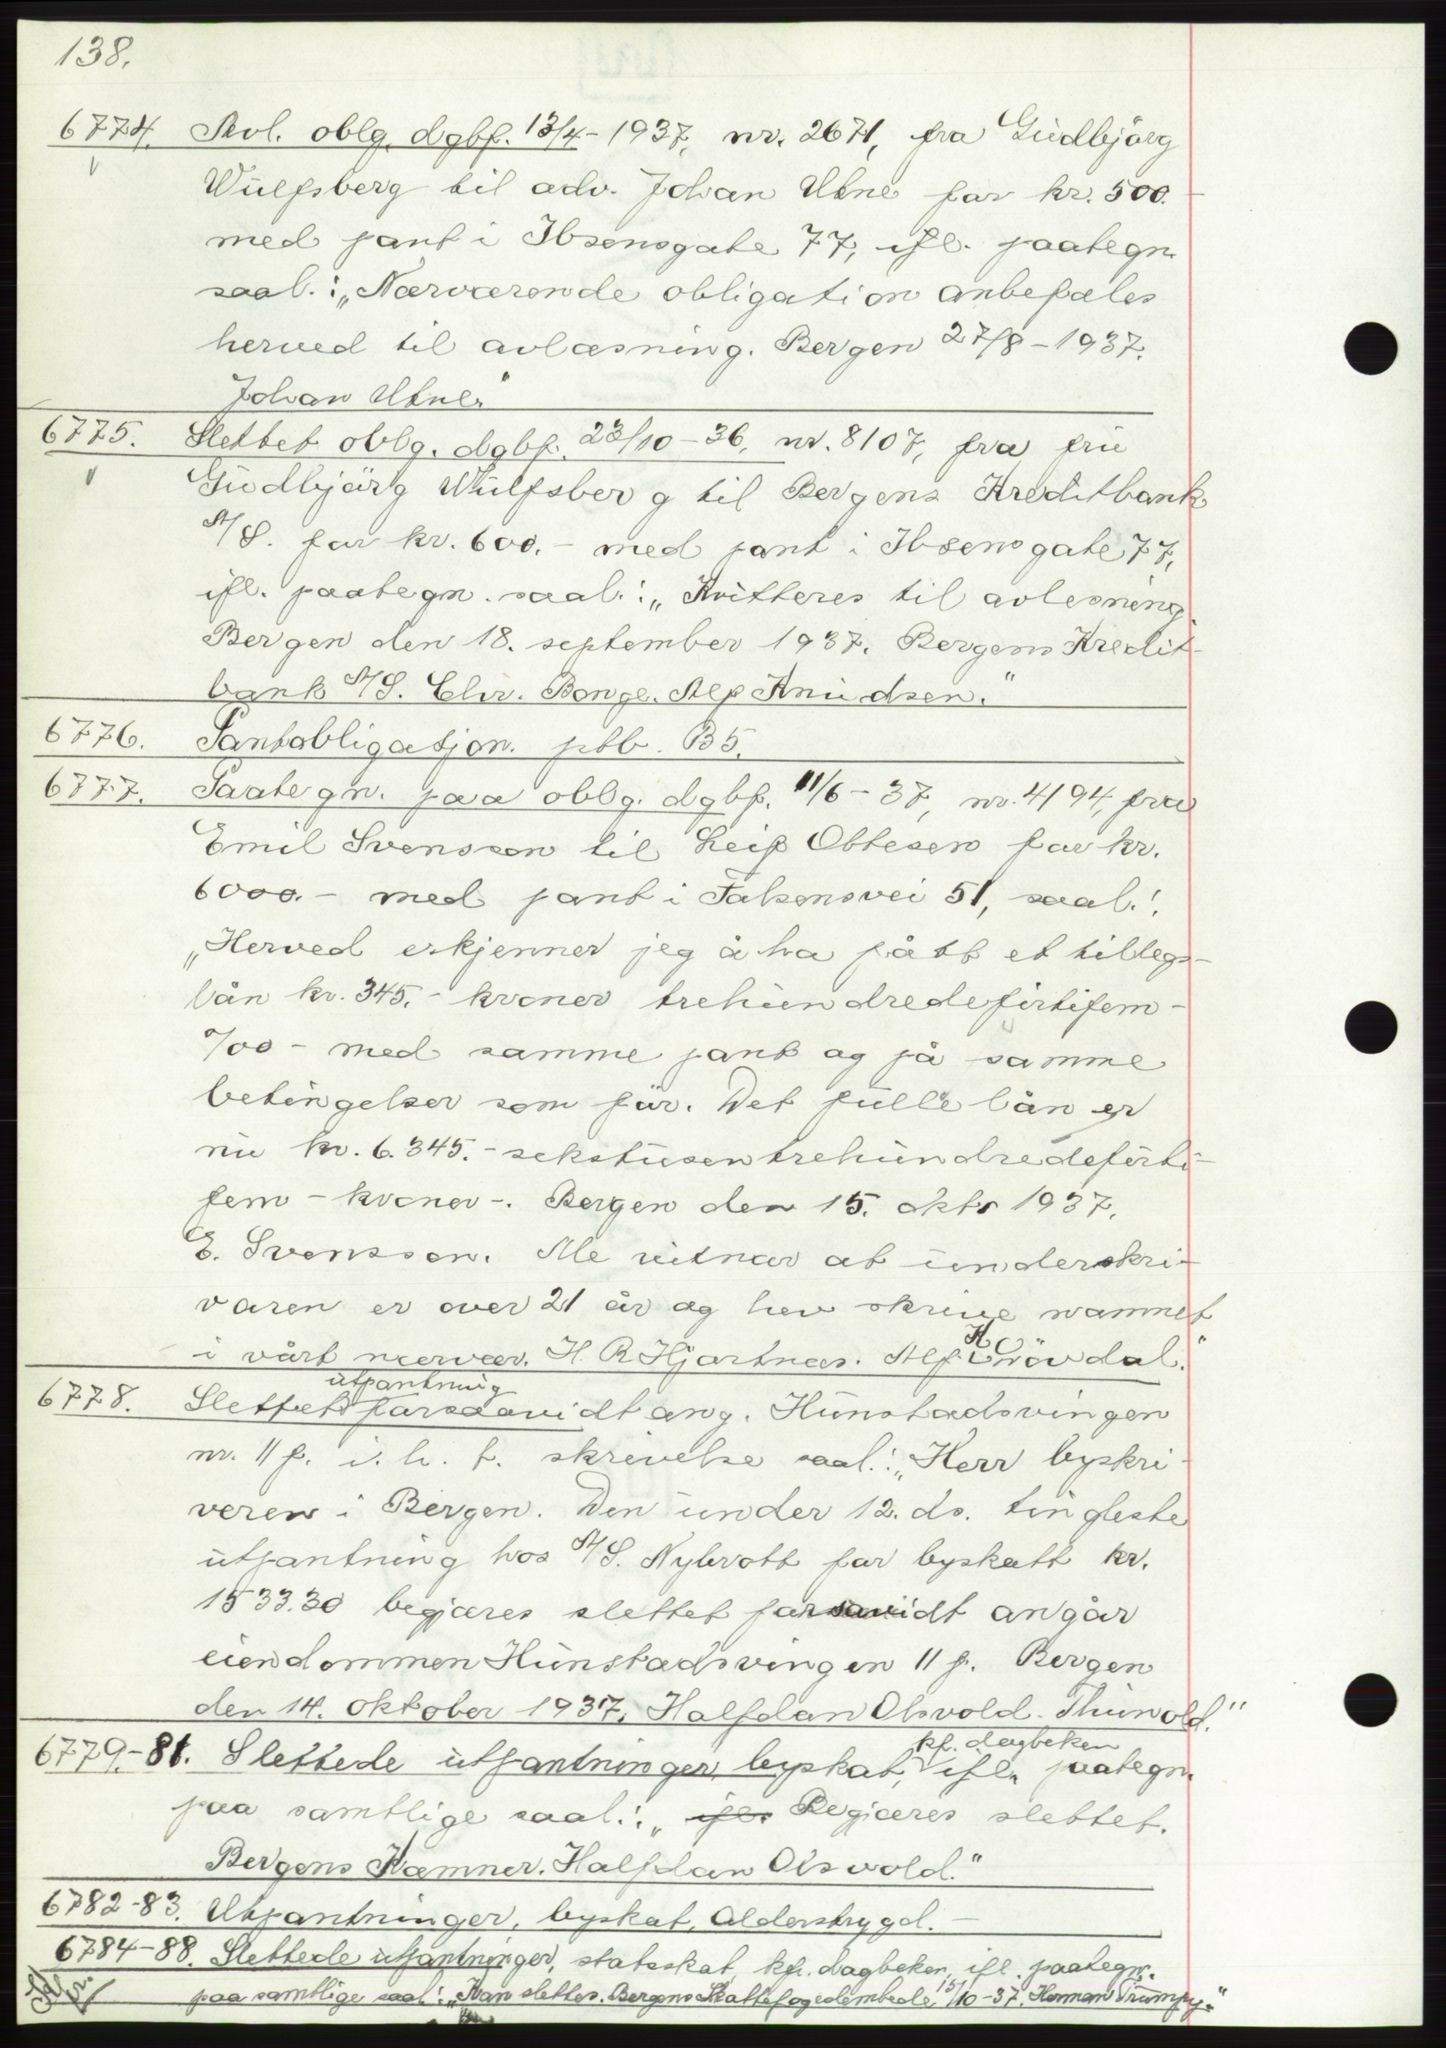 138.
6774. Avl. oblg. dgbf. 13/4-1937, nr. 2671, fra Gudbjörg
Wulfsberg til adv. Johan Utne for kr. 500.
med pant i Ibsensgate 77, ifl. paategn.
saal.: „Nærværende obligation anbefales
herved til avlæsning. Bergen 27/8-1937.
Johan Utne."
6775. Slettet oblg. dgbf. 23/10-36, nr. 8107, fra fru
Gudbjörg Wulfsberg til Bergens Kreditbank
A/S. for kr. 600.- med pant i Ibsensgate 77,
ifl. paategn. saal.: „Kvitteres til avlesning.
Bergen den 18. september 1937. Bergens Kredit-
bank A/S. Chr. Bonge. Alf Knudsen."
6776. Pantobligasjon. ptb. B5.
6777. Paategn. paa oblg. dgbf. 11/6-37, nr. 4194, fra
Emil Svensson til Leif Ottesen for kr.
6000.- med pant i Falsensvei 51, saal.:
„Herved erkjenner jeg å ha fått et tillegs-
lån kr. 345.- kroner trehundredeførtifem-
o/oo - med samme pant og på samme
betingelser som før. Det fulle lån er
nu kr. 6.345.- sekstusentrehundredeførti-
fem - kroner -. Bergen den 15. okt. 1937.
E. Svensson. Me vitnar at underskri-
varen er over 21 år og hev skrive namnet
i vårt nærvær. H. R Hjartnes. Alf K Grövdal."
6778. Slettet utpantning forsaavidt ang. Hunstadsvingen
nr. 11 f. i. h. t. skrivelse saal.: „Herr byskri-
veren i Bergen. Den under 12. ds. tingleste
utpantning hos A/S. Nybrott for byskatt kr.
1533.30 begjæres slettet forsavidt angår
eiendommen Hunstadsvingen 11 f. Bergen
den 14. oktober 1937. Halfdan Olsvold. Thunold."
6779.-81. Slettede utpantninger, byskat, kfr. dagboken ifl. paategn.
paa samtlige saal.: „ ifl. Begjæres slettet.
Bergens Kæmner. Halfdan Olsvold."
6782-83. Utpantninger, byskat, Alderstrygd.-
6784-88. Slettede utpantninger, statsskat, kfr. dagboken, ifl. paategn.
paa samtlige saal.: „Kan slettes. Bergens Skattefogedembede 15/10-37. Herman Trumpy."